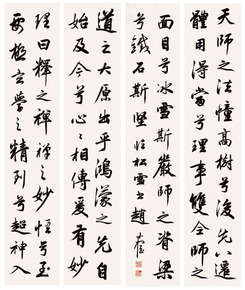 道之大原出乎鴻濛之先自
始及今兮心心相傳爰有妙
理曰釋之禪禪之妙悟兮玄
要極玄之精列兮超神入
天師之法幢高樹兮後先以還
體用得當兮理事雙全師之
面目兮冰雪斯嚴師之脊梁
兮鐵石斯堅 臨松雪 趙